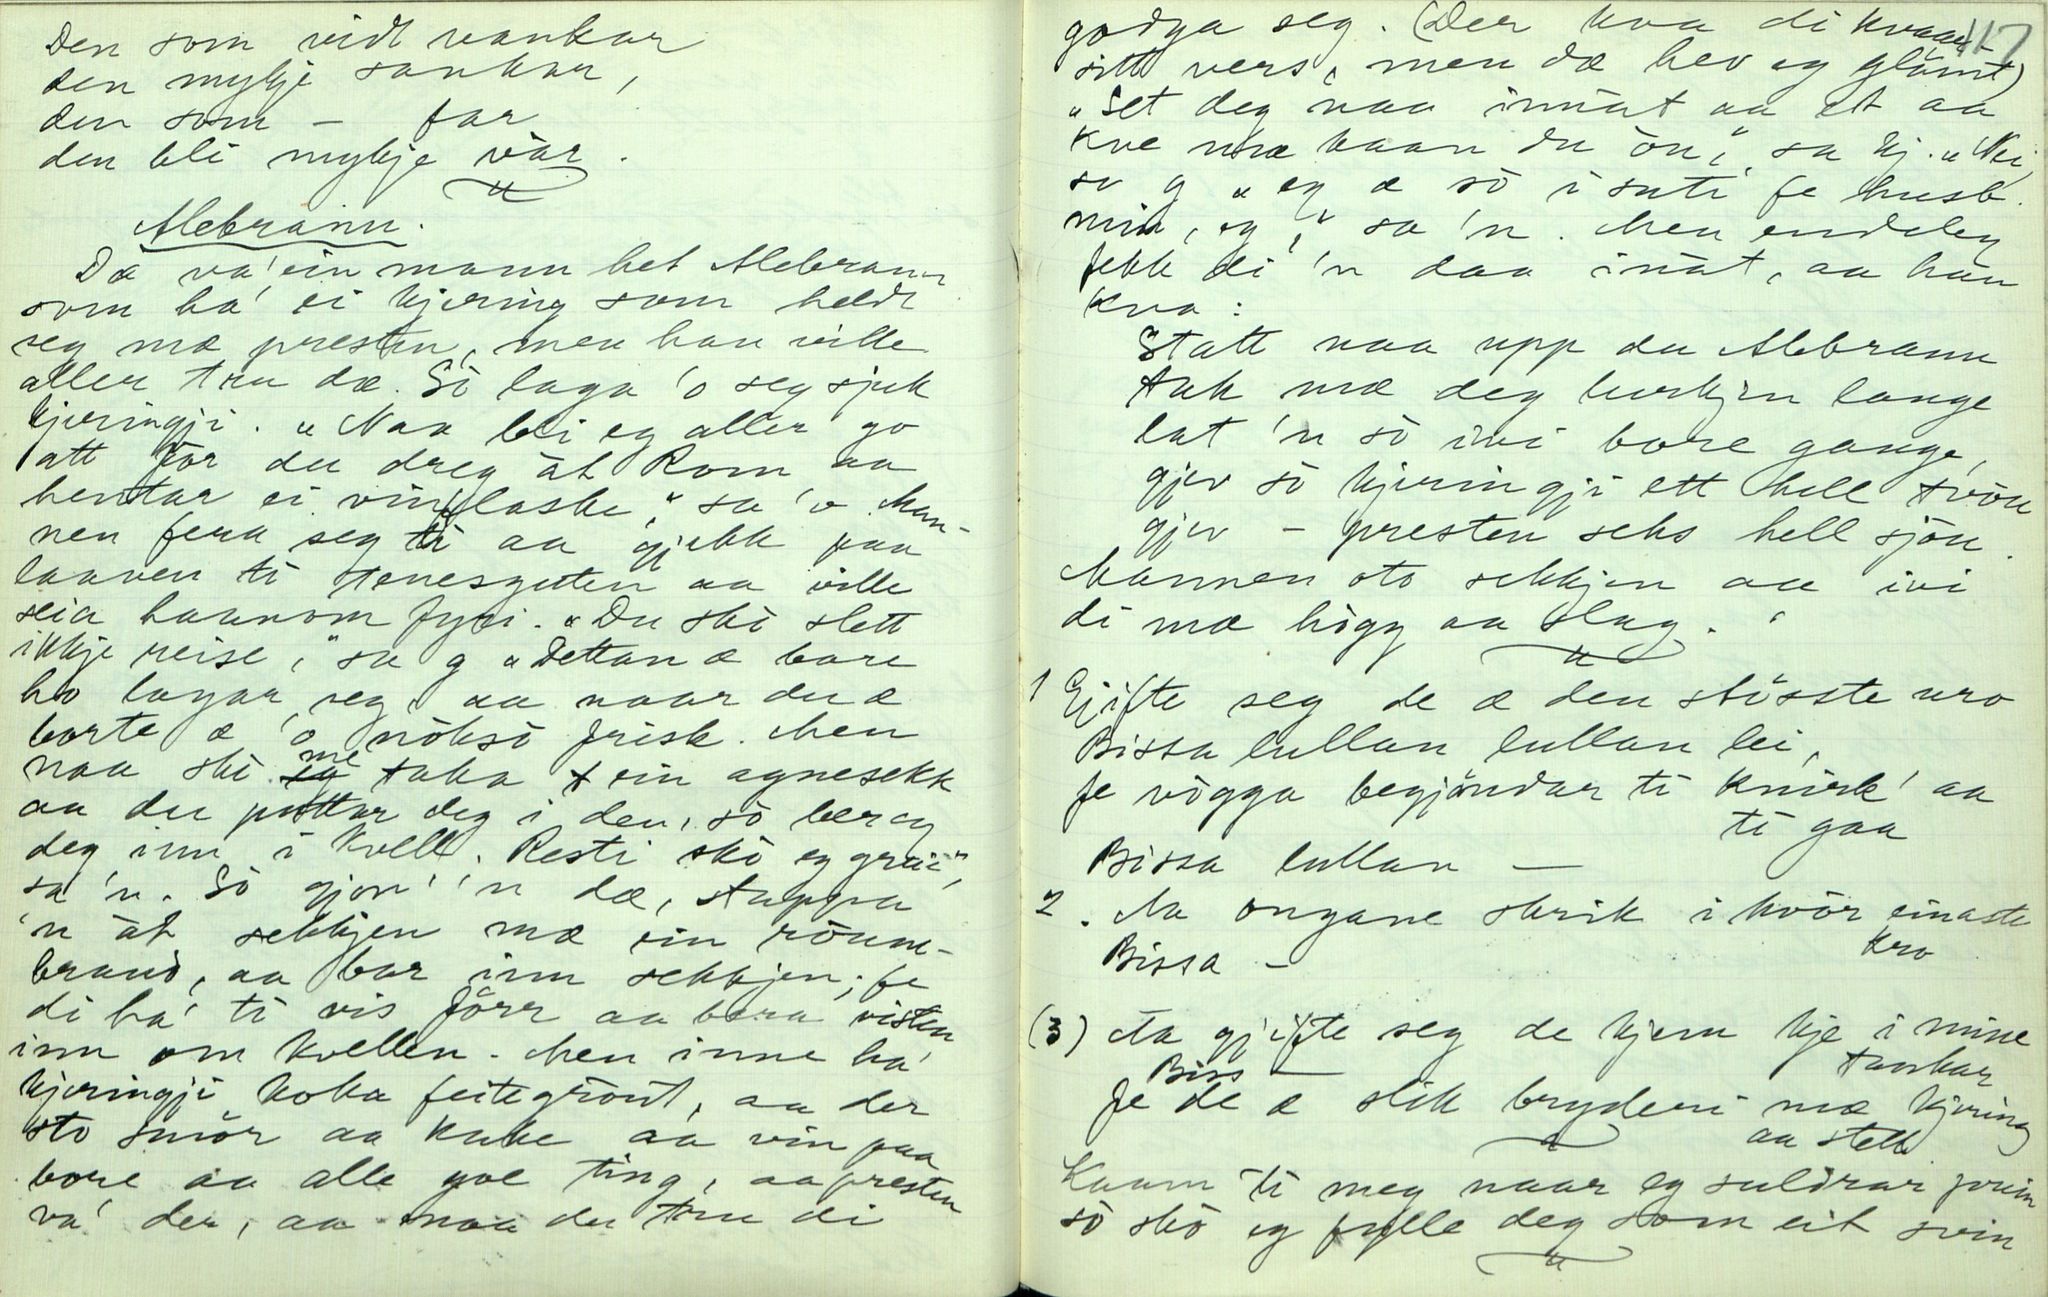 Den som vidt vankar
den mykje sankar,
den som – far
den bli mykje vàr.
Alebrann.
Dæ va' ein mann het Alebrann
som ha' ei kjering som heldt
seg mæ presten, men han ville
aller tru dæ. Sò laga 'o seg sjuk
kjeringji. „Naa bli eg aller go
att för du dreg åt Rom aa
hentar ei vinflaske," sa 'o. Man-
nen fera seg ti aa gjekk paa
laaven ti tenesguten aa ville
seia haanom fyri. „Du skò slett
ikkje reise," sa g „Dettan æ bare
ho lagar seg, aa naar du æ
borte æ 'o nòksò frisk. Men
naa skò me taka ein agnesekk
aa du puttar deg i den, sò ber eg
deg inn i kvell. Resti skò eg greie",
sa 'n. Sò gjor' 'n dæ, stappa
'n åt sekkjen mæ ein rönne-
brand, aa bar inn sekkjen; fe
di ha' ti vis förr aa bera visten
inn om kvellen. Men inne ha'
kjeringji koka feitegròut, aa der
sto smör aa kake aa vin paa
bore aa alle goe ting, aa presten
va' der, aa naa du tru di
117
godga seg. (Der kva di kvaar
sitt vers, men dæ hev eg glömt)
„Set deg naa innåt aa et aa
kve mæ kaan du òn," sa kj. „Nei,
sv g „eg æ sò i suti fe husb.
min, eg," sa 'n. Men endeleg
fekk di 'n daa innåt, aa han
kva:
Statt naa upp du Alebrann
tak mæ deg burkjen lange
lat 'n sò ivi bore gange,
gjev sò kjeringji ett hell tvòu
gjev – presten seks hell sjòu.
Mannen oto sekkjen aa ivi
di mæ högg aa slag.
1 Gjifte seg de æ den stösste uro
Bissa lullan lullan lei,
fe vögga begjöndar ti knirk' aa
ti gaa
Bissa lullan —
2. Aa ongane skrik i kvör einaste
kro
Bissa –
(3) Aa gjifte seg de kjem kje i mine
tankar
Biss —
Fe de æ slik bryderi mæ kjering
aa stell
Kaam ti meg naar eg suldrar
sò skò eg fylle deg som eit svin